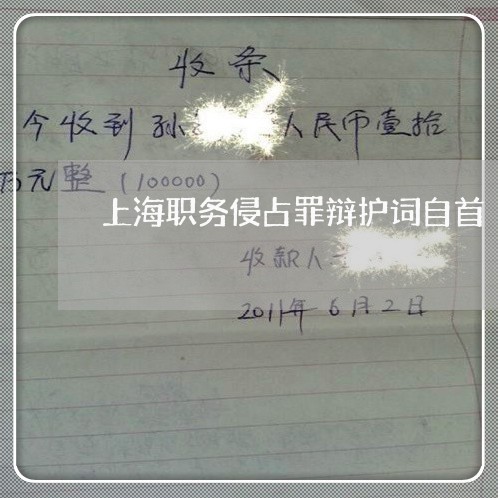 收条
今收到孙 人民币壹拾
万元整（100000）
上海职务侵占罪辩护词自首
收款人
2011年6月2日